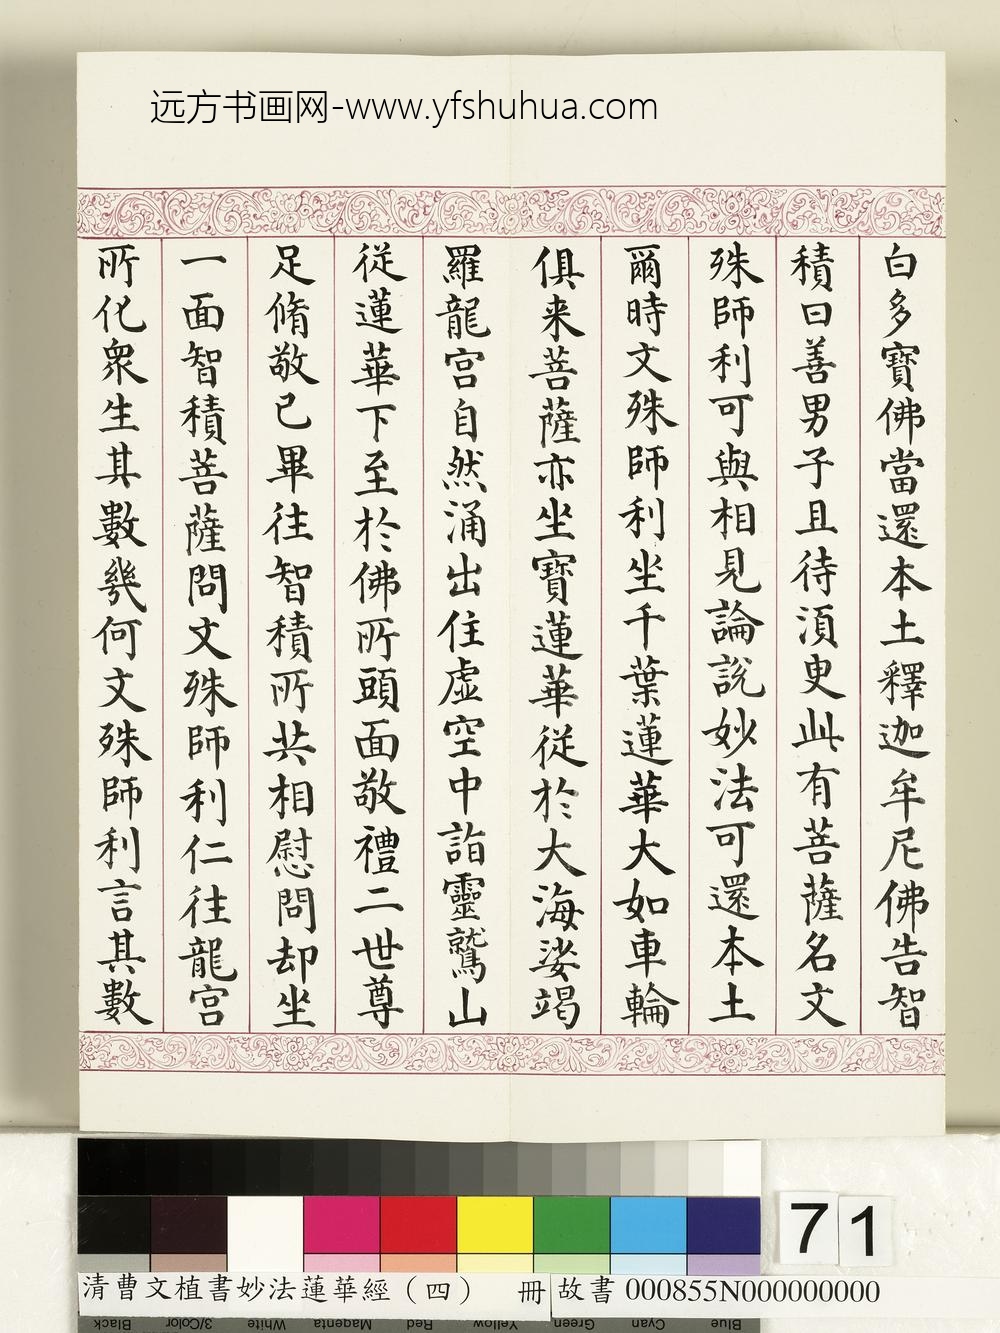 远方书画网-www.yfshuhua.com
白多寶佛當還本土釋迦牟尼佛告智
積曰善男子且待湏臾此有菩薩名文
殊師利可與相見論說妙法可還本土
爾時文殊師利坐千葉蓮華大如車輪
俱来菩薩亦坐寶蓮華從於大海娑竭
羅龍宮自然涌出住虛空中詣靈鷲山
從蓮華下至於佛所頭面敬禮二世尊
足脩敬已畢往智積所共相慰問却坐
一面智積菩薩問文殊師利仁往龍宮
所化衆生其數幾何文殊師利言其數
71
清曹文植書妙法蓮華經（四） 冊
故書 000855N000000000
Black 3/Color White Magenta Red Yellow Green Cyan Blue